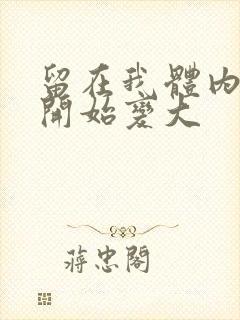 留在我體內
開始變大
蔣忠閣